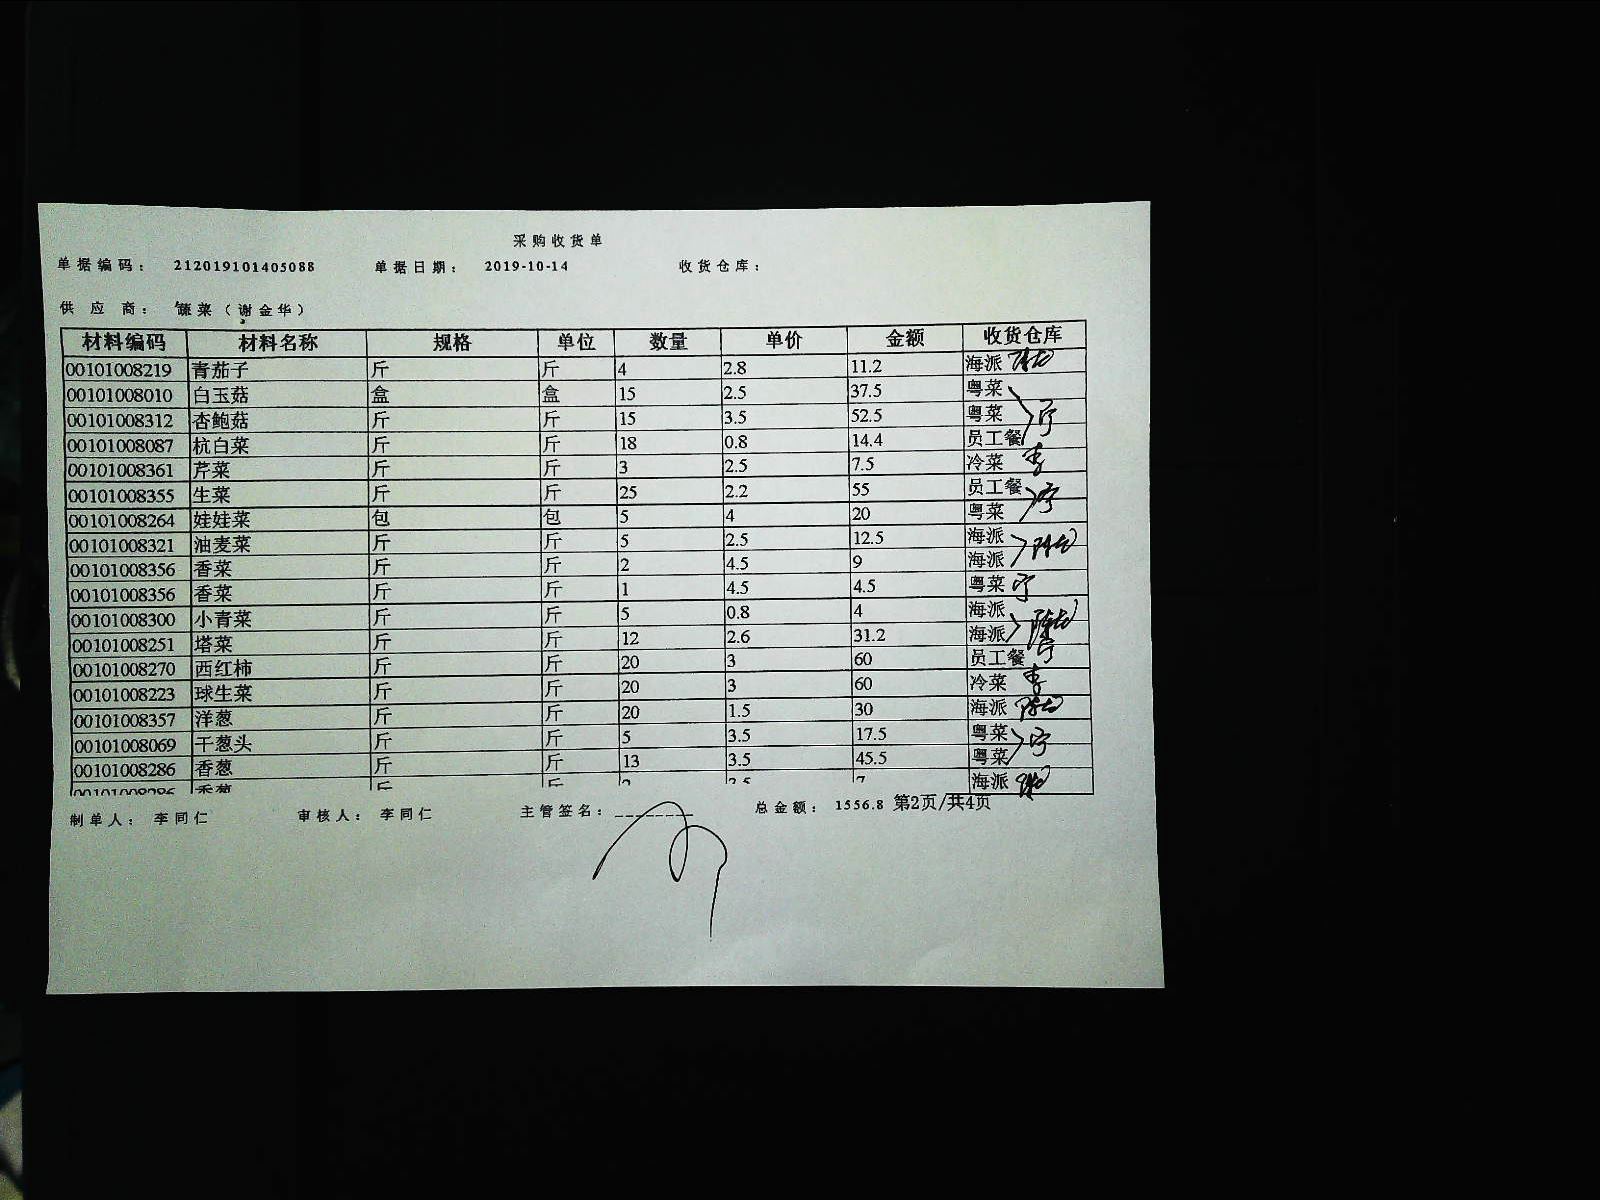 采购收货单
单据编码： 212019101405088 单据日期： 2019-10-14 收货仓库：
供应商： 蔬菜（谢金华）
材料编码 材料名称 规格 单位 数量 单价 金额 收货仓库
00101008219 青茄子 斤 斤 4 2.8 11.2 海派
00101008010 白玉菇 盒 盒 15 2.5 37.5 粤菜
00101008312 杏鲍菇 斤 斤 15 3.5 52.5 粤菜
00101008087 杭白菜 斤 斤 18 0.8 14.4 员工餐
00101008361 芹菜 斤 斤 3 2.5 7.5 冷菜 李
00101008355 生菜 斤 斤 25 2.2 55 员工餐
00101008264 娃娃菜 包 包 5 4 20 粤菜
00101008321 油麦菜 斤 斤 5 2.5 12.5 海派
00101008356 香菜 斤 斤 2 4.5 9 海派
00101008356 香菜 斤 斤 1 4.5 4.5 粤菜
00101008300 小青菜 斤 斤 5 0.8 4 海派
00101008251 塔菜 斤 斤 12 2.6 31.2 海派
00101008270 西红柿 斤 斤 20 3 60 员工餐
00101008223 球生菜 斤 斤 20 3 60 冷菜 李
00101008357 洋葱 斤 斤 20 1.5 30 海派
00101008069 干葱头 斤 斤 5 3.5 17.5 粤菜
00101008286 香葱 斤 斤 13 3.5 45.5 粤菜
00101008286 香葱 斤 斤 2 3.5 7 海派
制单人： 李同仁 审核人： 李同仁 主管签名：________ 总金额： 1556.8 第2页/共4页